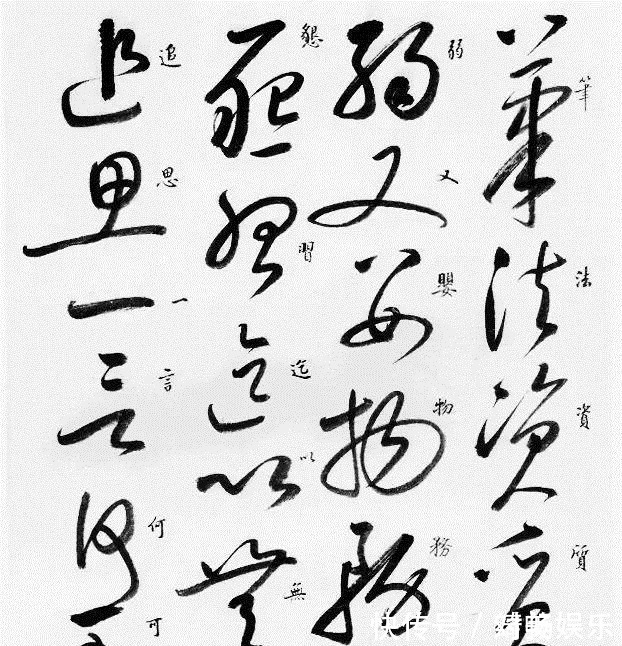 筆法資質
弱又嬰物務
懇習迄以無
追思一言何可
快传号 /